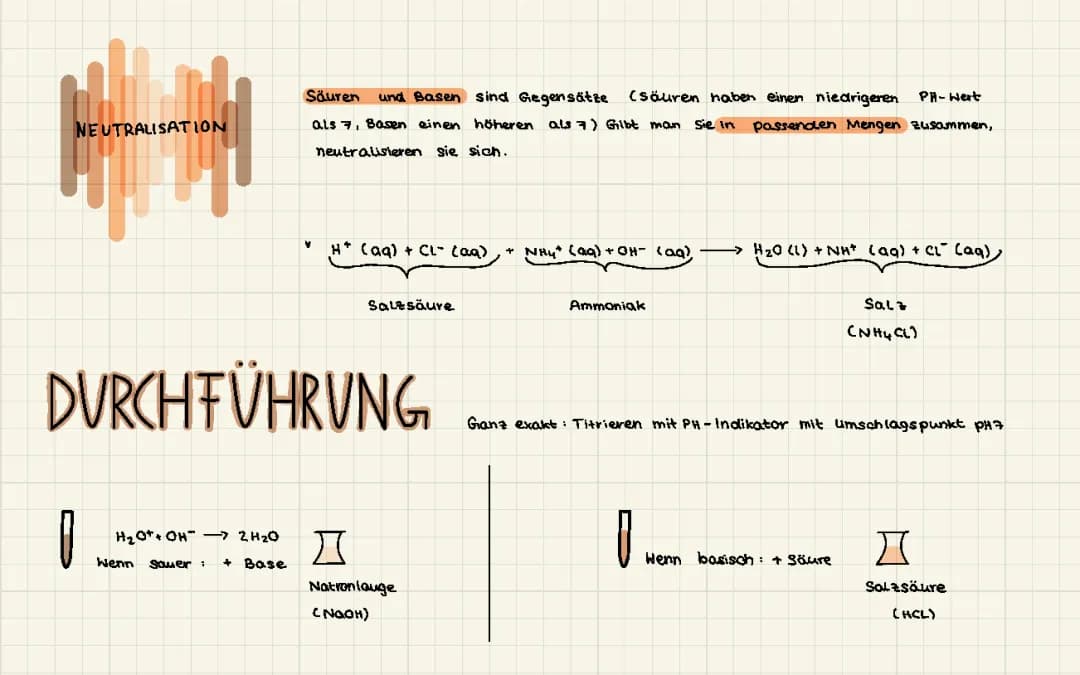 NEUTRALISATION
Säuren und Basen sind Gegensätze (Säuren haben einen niedrigeren PH-Wert
als 7, Basen einen höheren als 7) Gibt man sie in passenden Mengen zusammen,
neutralisieren sie sich.
H⁺ (aq) + Cl⁻ (aq) + NH₄⁺ (aq) + OH⁻ (aq) → H₂O (l) + NH⁺ (aq) + Cl⁻ (aq)
Salzsäure Ammoniak Salz
(NH₄CL)
DURCHFÜHRUNG
Ganz exakt : Titrieren mit PH-Indikator mit Umschlagspunkt pH7
H₂O⁺ + OH⁻ → 2H₂O
Wenn sauer : + Base
Natronlauge
(NaOH)
Wenn basisch : + Säure
Salzsäure
(HCL)